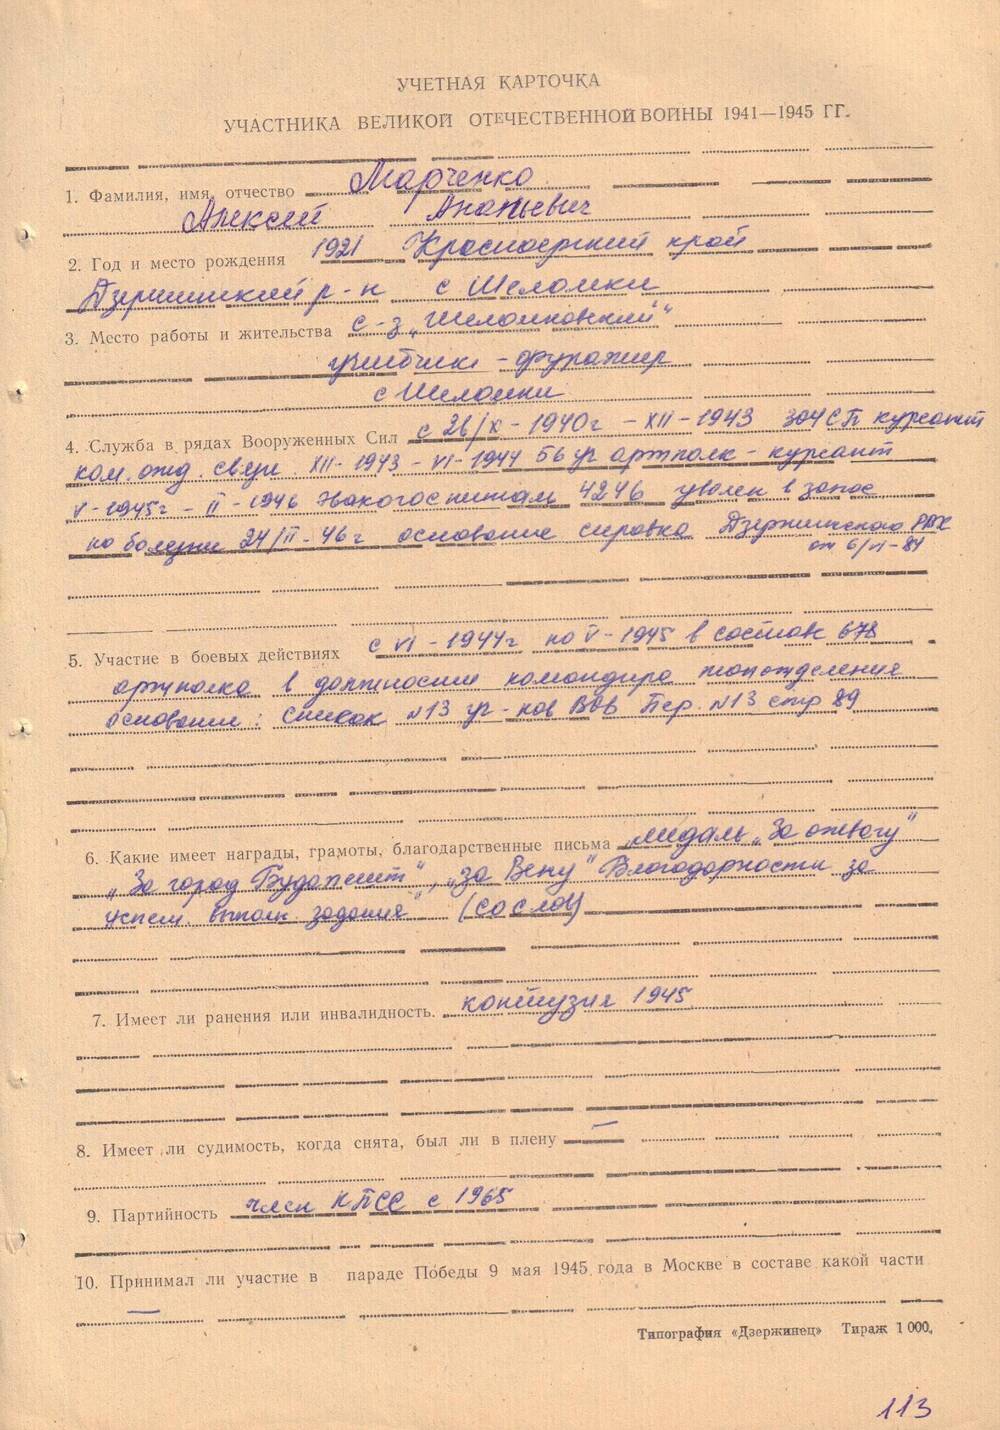 УЧЕТНАЯ КАРТОЧКА
УЧАСТНИКА ВЕЛИКОЙ ОТЕЧЕСТВЕННОЙ ВОЙНЫ 1941—1945 ГГ.
1. Фамилия, имя, отчество Марченко
Алексей Ананьевич
2. Год и место рождения 1921 Красноярский край
Дзержинский р-н с Шеломки
3. Место работы и жительства с-з „Шеломковский"
учетчик-фуражир
с Шеломки
4. Служба в рядах Вооруженных Сил с 26/X-1940г - XII-1943 304 СП курсант
ком. отд. связи XII-1943 - VI-1944 56 уч артполк - курсант
V-1945г - II-1946 Эвакогоспиталь 4246 уволен в запас
по болезни 24/II-46г основание справка Дзержинского РВК
от 6/VI-84
5. Участие в боевых действиях с VI-1944г по V-1945 в состав 678
артполка в должности командира топотделения
основание: список №13 уч-ков ВОВ Пер. №13 стр 89
6. Какие имеет награды, грамоты, благодарственные письма медаль „За отвагу"
„За город Будапешт", „за Вену" Благодарности за
успеш. выполн. задания (со слов)
7. Имеет ли ранения или инвалидность. контузия 1945
8. Имеет ли судимость, когда снята, был ли в плену —
9. Партийность член КПСС с 1965
10. Принимал ли участие в параде Победы 9 мая 1945 года в Москве в составе какой части
—
Типография «Дзержинец» Тираж 1 000.
113